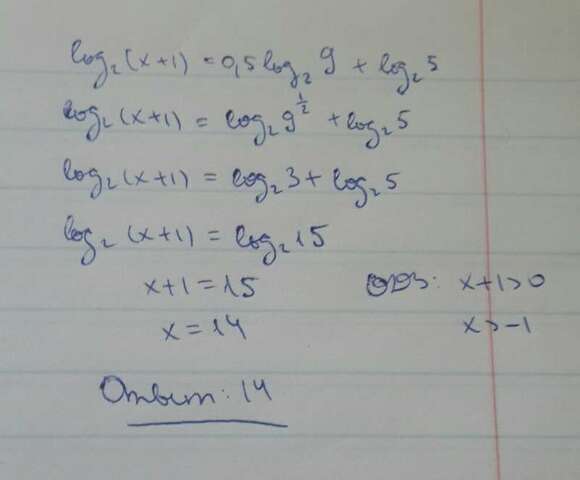 log₂(x+1) = 0,5 log₂ 9 + log₂ 5
log₂(x+1) = log₂ 9^½ + log₂ 5
log₂(x+1) = log₂ 3 + log₂ 5
log₂(x+1) = log₂ 15
x+1 = 15 ОДЗ: x+1>0
x = 14 x > -1
Ответ: 14